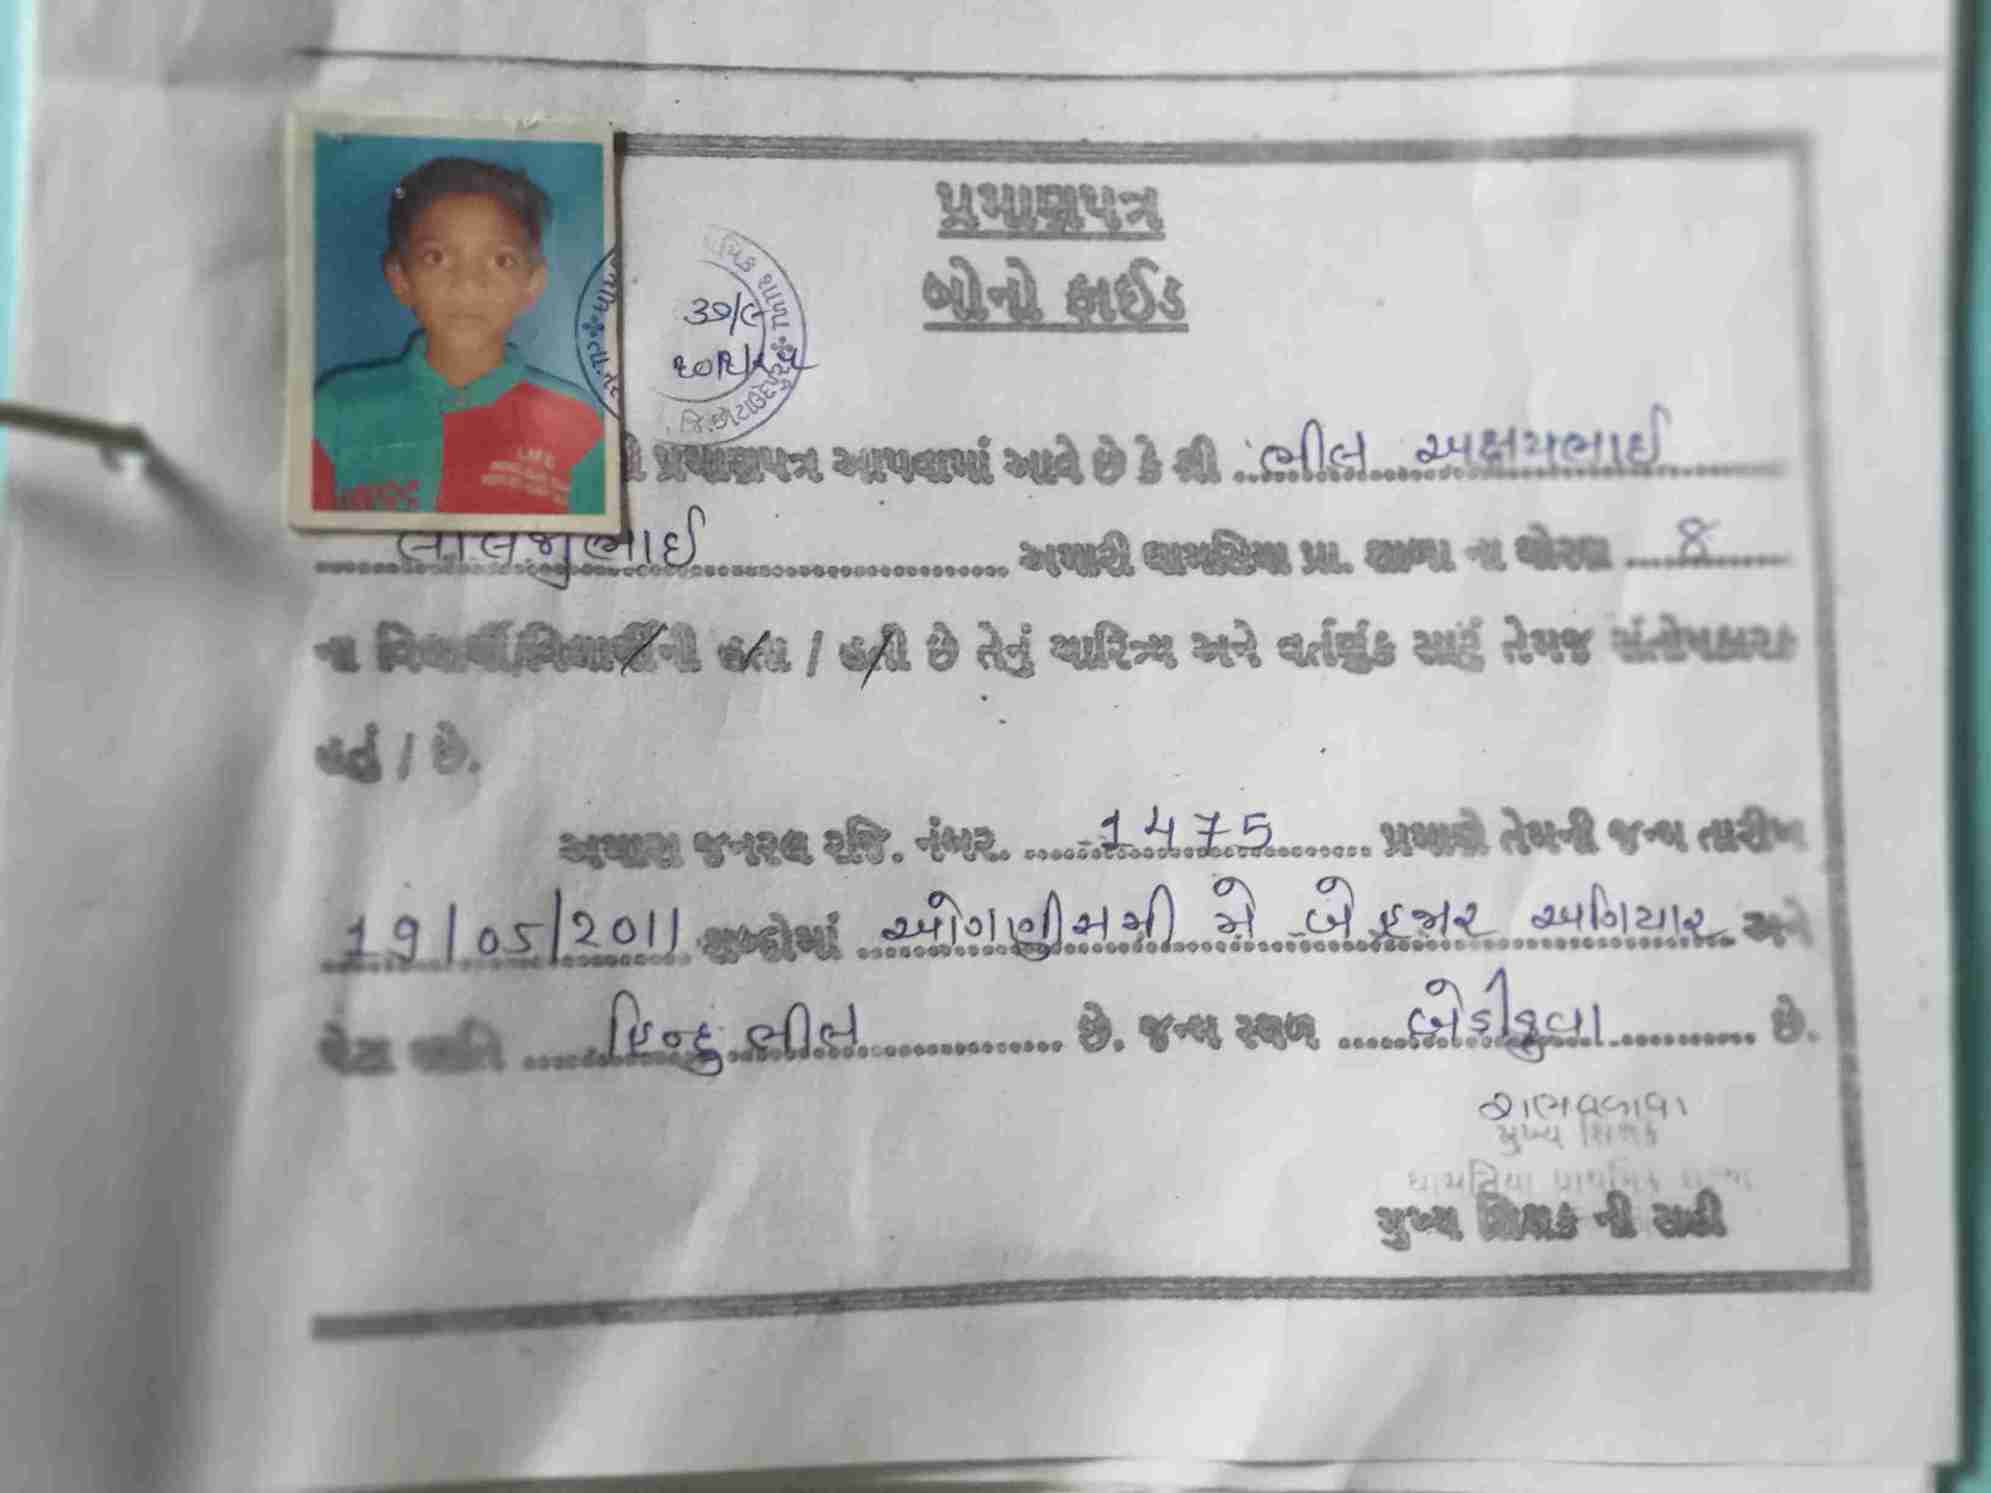 પ્રમાણપત્ર
બોનો ફાઈડ
પ્રમાણપત્ર આપવામાં આવે છે કે શ્રી ભીલ અક્ષયભાઈ
લાલજીભાઈ અમારી ધામણિયા પ્રા. શાળા ના ધોરણ ૪
ના વિદ્યાર્થી/વિદ્યાર્થીની હતા / હતી છે તેનું ચારિત્ર્ય અને વર્તણુંક સારું તેમજ સંતોષકારક
હતું / છે.
અમારા જનરલ રજિ. નંબર. 1475 પ્રમાણે તેમની જન્મ તારીખ
19/05/2011 શબ્દોમાં ઓગણીસમી મે બે હજાર અગિયાર અને
પેટા જાતિ હિન્દુ ભીલ છે. જન્મ સ્થળ બેડીકુવા છે.
મુખ્ય શિક્ષક
પ્રાથમિક
મુખ્ય શિક્ષક ની સહી